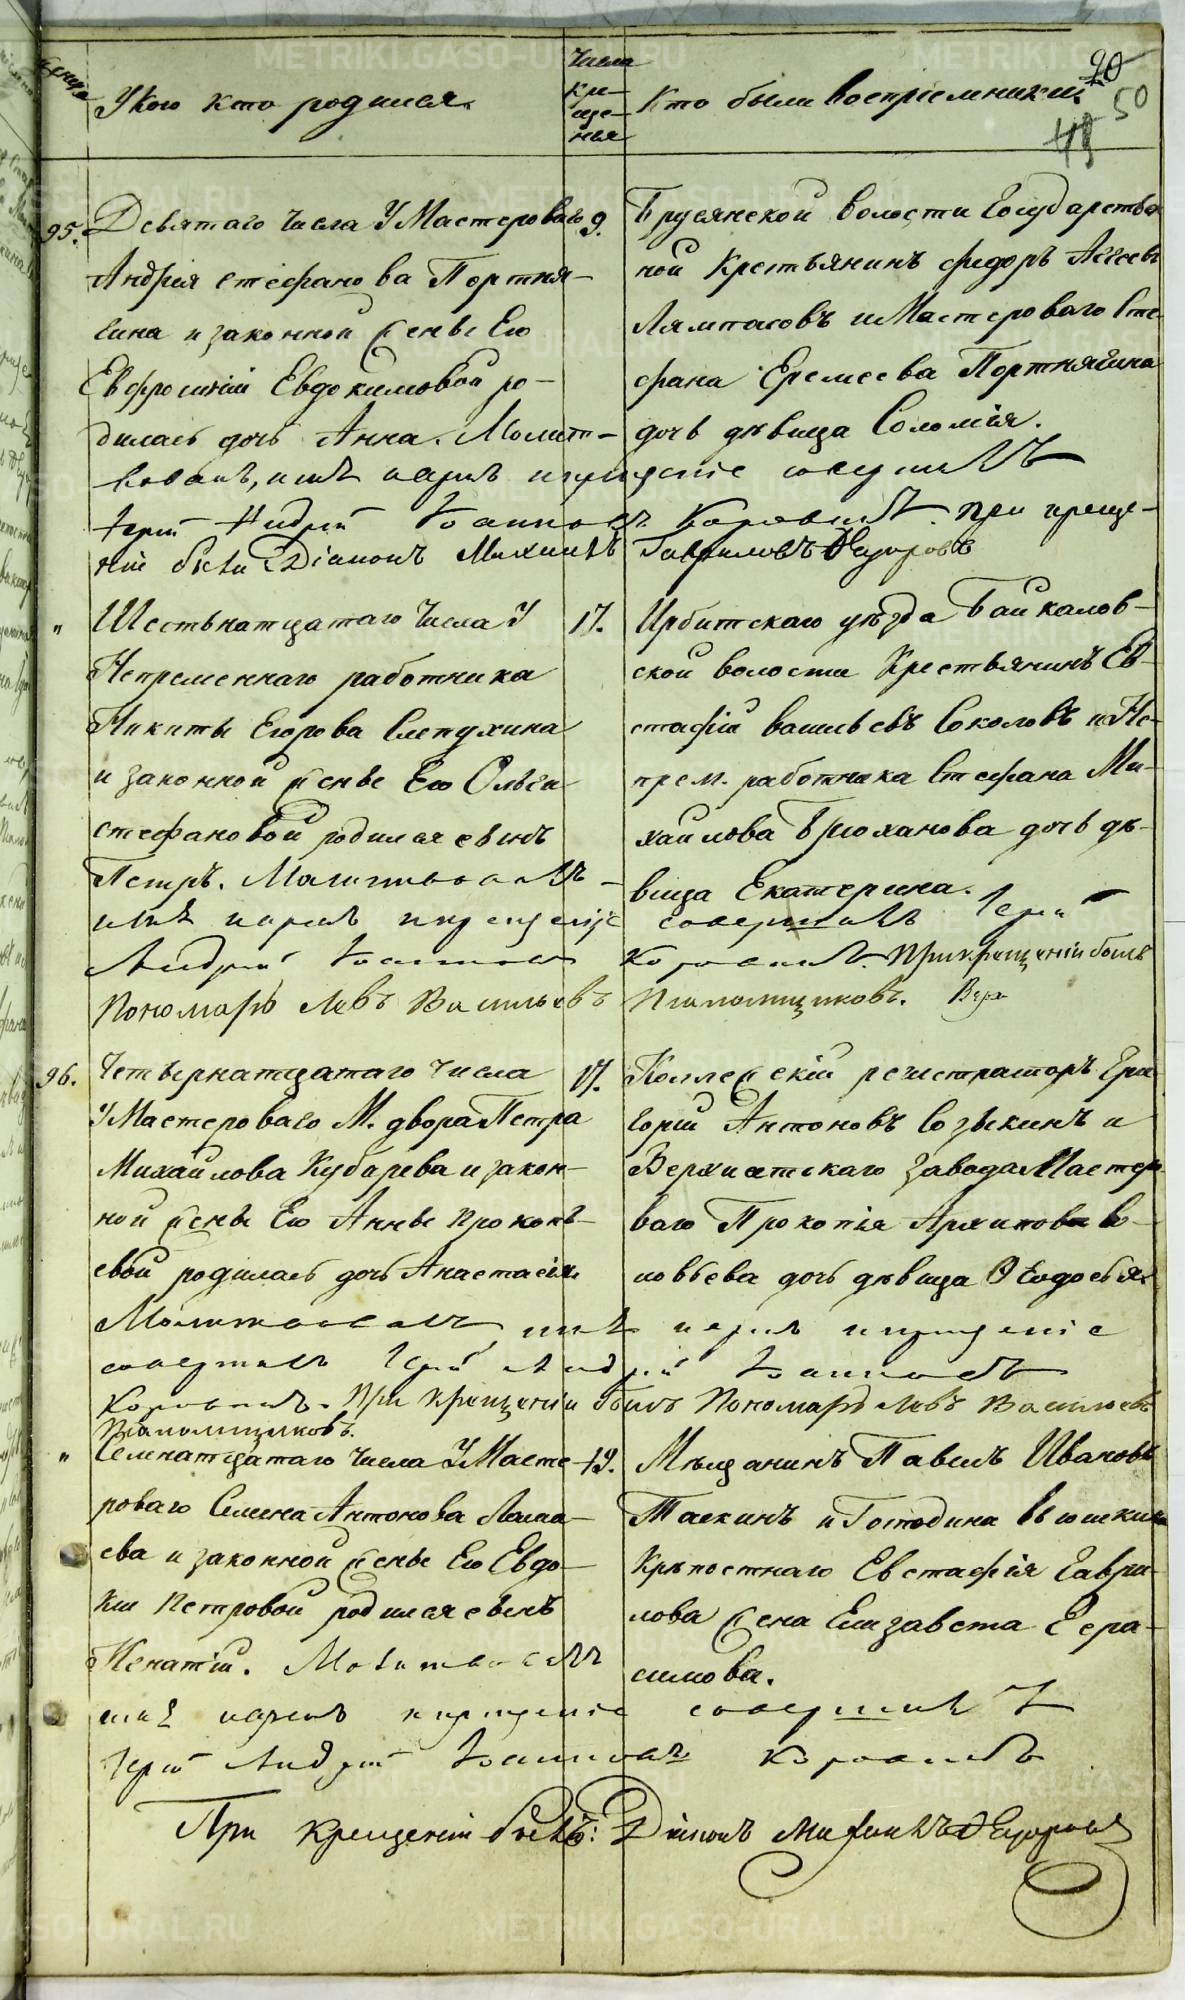 У кого кто родился.
Числа кре-
ще-
нья
Кто были воспрiемники.
20
50
95.
Девятаго числа У Мастероваго
Андрея Стефанова Портня-
гина и законной женъе Его
Евфросинiи Евдокимовой ро-
дилась дочь Анна. Молит-
вовалъ, имя нарекъ и крещенiе совершилъ
Iерей Андрей Iоанновъ Коровинъ. При креще-
нiи былъ Дiаконъ Михаилъ Гавриловъ Ѳедоровъ
9.
Бруснянской волости Государствен
ной Крестьянинъ Федоръ Агѣевъ
Лямпасовъ и Мастероваго Сте-
фана Еремеева Портнягина
дочь дѣвица Соломiя.
"
Шестьнатцатаго Числа У
Непременнаго работника
Никиты Егорова Слепухина
и законной женъе Его Ольги
Стефановой родился сынъ
Петръ. Молитвовалъ
имя нарекъ и крещенiе совершилъ Iерей
Андрей Iоанновъ Коровинъ. При крещенiи былъ
Пономарь Левъ Васильевъ
17.
Ирбитскаго уѣзда Байкалов-
ской волости Крестьянинъ Ев-
стафiй Васильевъ Соколовъ и Не-
прем. работника Стефана Ми-
хайлова Брюханова дочь дѣ-
вица Екатерина.
96.
Четырнатцатаго Числа
У Мастероваго М. двора Петра
Михайлова Кубарева и закон-
ной женъе Его Аннъе Прокопь-
евой родилась дочь Анастасiя.
Молитвовалъ, имя нарекъ и крещенiе
совершилъ Iерей Андрей Iоанновъ
Коровинъ. При крещенiи былъ Пономарь Левъ Васильевъ
17.
Коллежскiй регистраторъ Гри-
горiй Антоновъ Созыкинъ и
Верхисетскаго завода Мастеро
ваго Прокопiя Архипова Со-
ловьева дочь дѣвица Ѳеодосья.
"
Семнатцатаго Числа У Масте-
роваго Семена Антонова
ева и законной женъе Его Евдо-
кiи Петровой родился сынъ
Игнатiй. Молитвовалъ
имя нарекъ и крещенiе совершилъ
Iерей Андрей Iоанновъ Коровинъ
19.
Мѣщанинъ Павелъ Ивановъ
Таскинъ и Господина
Крѣпостнаго Евстафiя Гаври-
лова жена Елизавета Гера-
симова.
При крещенiи былъ: Дiаконъ Михаилъ Ѳедоровъ
METRIKI.GASO-URAL.RU